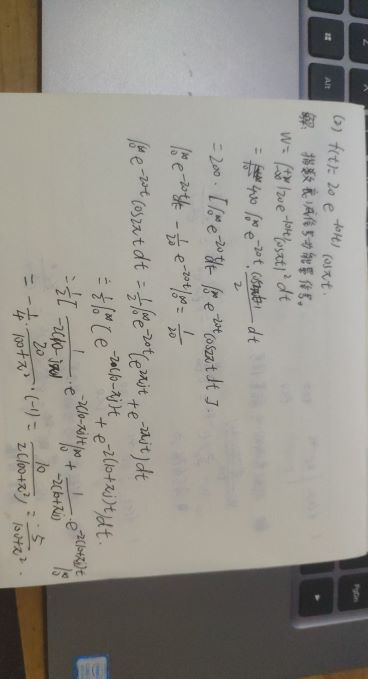 (2) f(t)= 20 e^{-10|t|} cosπt.
解: 指数衰减信号为能量信号。
W= ∫_{-∞}^{+∞} |20e^{-10|t|} cosπt|² dt
= 400 ∫_0^∞ e^{-20t} · \frac{cos2πt+1}{2} dt
=200 · [∫_0^∞ e^{-20t} dt - ∫_0^∞ e^{-20t} cos2πt dt].
∫_0^∞ e^{-20t} dt - \frac{1}{20} e^{-20t} |_0^∞ = \frac{1}{20}
∫_0^∞ e^{-20t} cos2πt dt = \frac{1}{2} ∫_0^∞ e^{-20t} (e^{2πjt} + e^{-2πjt}) dt
= \frac{1}{2} ∫_0^∞ (e^{-2(10-πj)t} + e^{-2(10+πj)t}) dt.
= \frac{1}{2} [ \frac{1}{-2(10-jπ)} · e^{-2(10-πj)t} |_0^∞ + \frac{1}{-2(10+πj)} · e^{-2(10+πj)t} |_0^∞
= -\frac{1}{4} · \frac{20}{100+π²} · (-1) = \frac{10}{2(100+π²)} = \frac{5}{100+π²}.